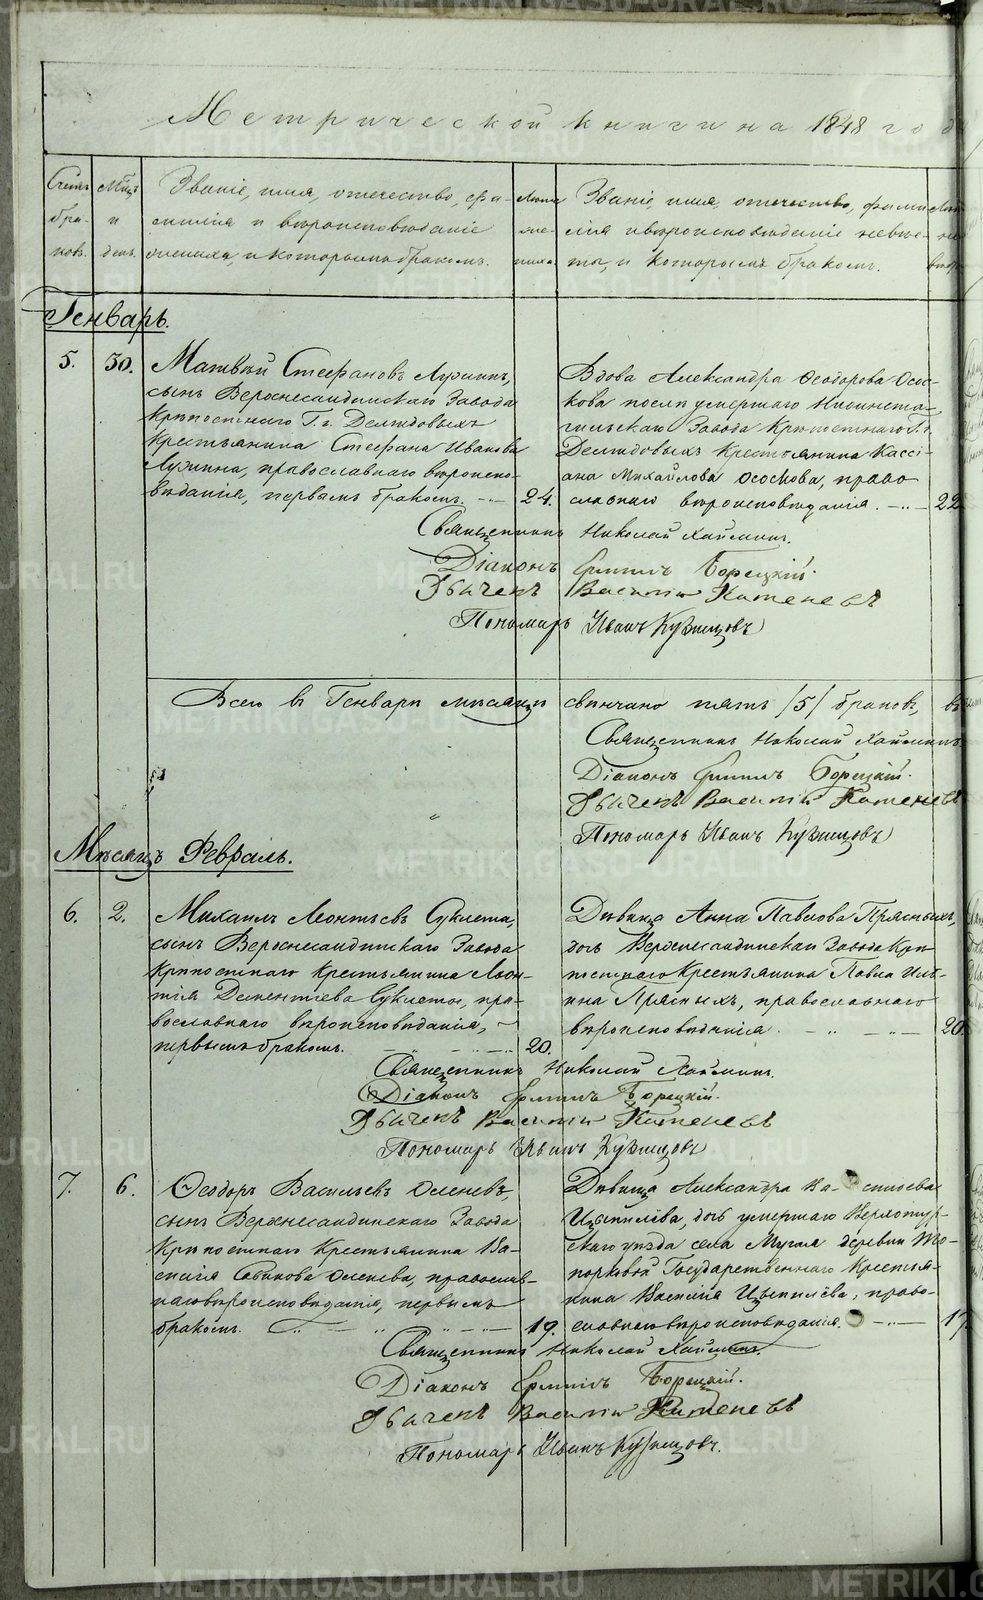 Метрической книги на 1848 год
Счетъ бра- ковъ.
Мѣц. и день.
Званіе, имя, отечество, фа-
милія и вѣроисповѣданіе
жениха, и которымъ бракомъ.
Лѣта же- ниха.
Званіе, имя, отечество, фами-
лія и вѣроисповѣданіе невѣс-
ты, и которымъ бракомъ.
Генварь.
5. 30. Матвѣй Стефановъ
сынъ Верхнесалдинскаго Завода
крѣпостнаго Г.г. Демидовыхъ
крестьянина Стефана Иванова
православнаго вѣроиспо-
вѣданія, первымъ бракомъ. 24.
Вдова Александра Ѳеодорова Осос-
кова послѣ умершаго Нижнета-
гильскаго Завода Крѣпостнаго Г.г.
Демидовыхъ Крестьянина Кассі-
ана Михайлова Ососкова, право
славнаго вѣроисповѣданія. 22
Священникъ Николай Хайминъ.
Діаконъ Ермилъ Борецкій.
Дьячекъ Василій Катеневъ
Пономарь Иванъ Кузнецовъ
Всего въ Генварѣ мѣсяцѣ свѣнчано пять /5/ браковъ, въ
Священникъ Николай Хайминъ
Діаконъ Ермилъ Борецкій.
Дьячекъ Василій Катеневъ
Пономарь Иванъ Кузнецовъ
Мѣсяцъ Февраль.
6. 2. Михаилъ Леонтьевъ Суклета,
сынъ Верхнесалдинскаго Завода
Крѣпостнаго Крестьянина Леон-
тія Дементіева пра-
вославнаго вѣроисповѣданія,
первымъ бракомъ. 20.
Дѣвица Анна Павлова Пряныхъ,
дочь Верхнесалдинскаго Завода Крѣ-
постнаго Крестьянина Павла Иль-
ина православнаго
вѣроисповѣданія. 20.
Священникъ Николай Хайминъ.
Діаконъ Ермилъ Борецкій.
Дьячекъ Василій Катеневъ
Пономарь Иванъ Кузнецовъ
7. 6. Ѳеодоръ Васильевъ Оленевъ,
сынъ Верхнесалдинскаго Завода
Крѣпостнаго Крестьянина Ва-
силія Савинова Оленева, православ-
наго вѣроисповѣданія, первымъ
бракомъ. 19.
Дѣвица Александра Ва- силіева
Цыпилева, дочь умершаго Верхотур-
скаго уѣзда села Мугая деревни То-
порковой Государственнаго Крестья-
нина Василія Цыпилева, право-
славнаго вѣроисповѣданія. 17
Священникъ Николай Хайминъ.
Діаконъ Ермилъ Борецкій.
Дьячекъ Василій Катеневъ
Пономарь Иванъ Кузнецовъ.
METRIKI.GASO-URAL.RU